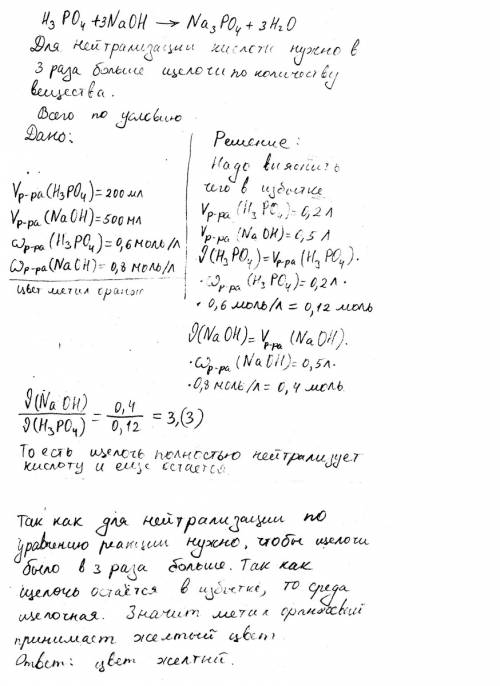 H₃PO₄+3NaOH → Na₃PO₄+3H₂O
Для нейтрализации кислоты нужно в
3 раза больше щелочи по количеству
вещества.
Всего по условию
Дано:
Vр-ра(H₃PO₄)=200 мл
Vр-ра(NaOH)=500 мл
ωр-ра(H₃PO₄)=0,6 моль/л
ωр-ра(NaOH)=0,8 моль/л
цвет метил оранж
Решение:
Надо выяснить
чего в избытке
Vр-ра(H₃PO₄)=0,2 л
Vр-ра(NaOH)=0,5 л
ϑ(H₃PO₄)=Vр-ра(H₃PO₄)·
·ωр-ра(H₃PO₄)=0,2л·
·0,6 моль/л=0,12 моль
ϑ(NaOH)=Vр-ра(NaOH)·
·ωр-ра(NaOH)=0,5л·
·0,8 моль/л=0,4 моль.
ϑ(NaOH)/ϑ(H₃PO₄) = 0,4/0,12 = 3,(3)
То есть щелочь полностью нейтрализует
кислоту и еще остается
Так как для нейтрализации по
уравнению реакции нужно, чтобы щелочи
было в 3 раза больше. Так как
щелочь остаётся в избытке, то среда
щелочная. Значит метил оранжевый
принимает желтый цвет.
Ответ: цвет желтый.